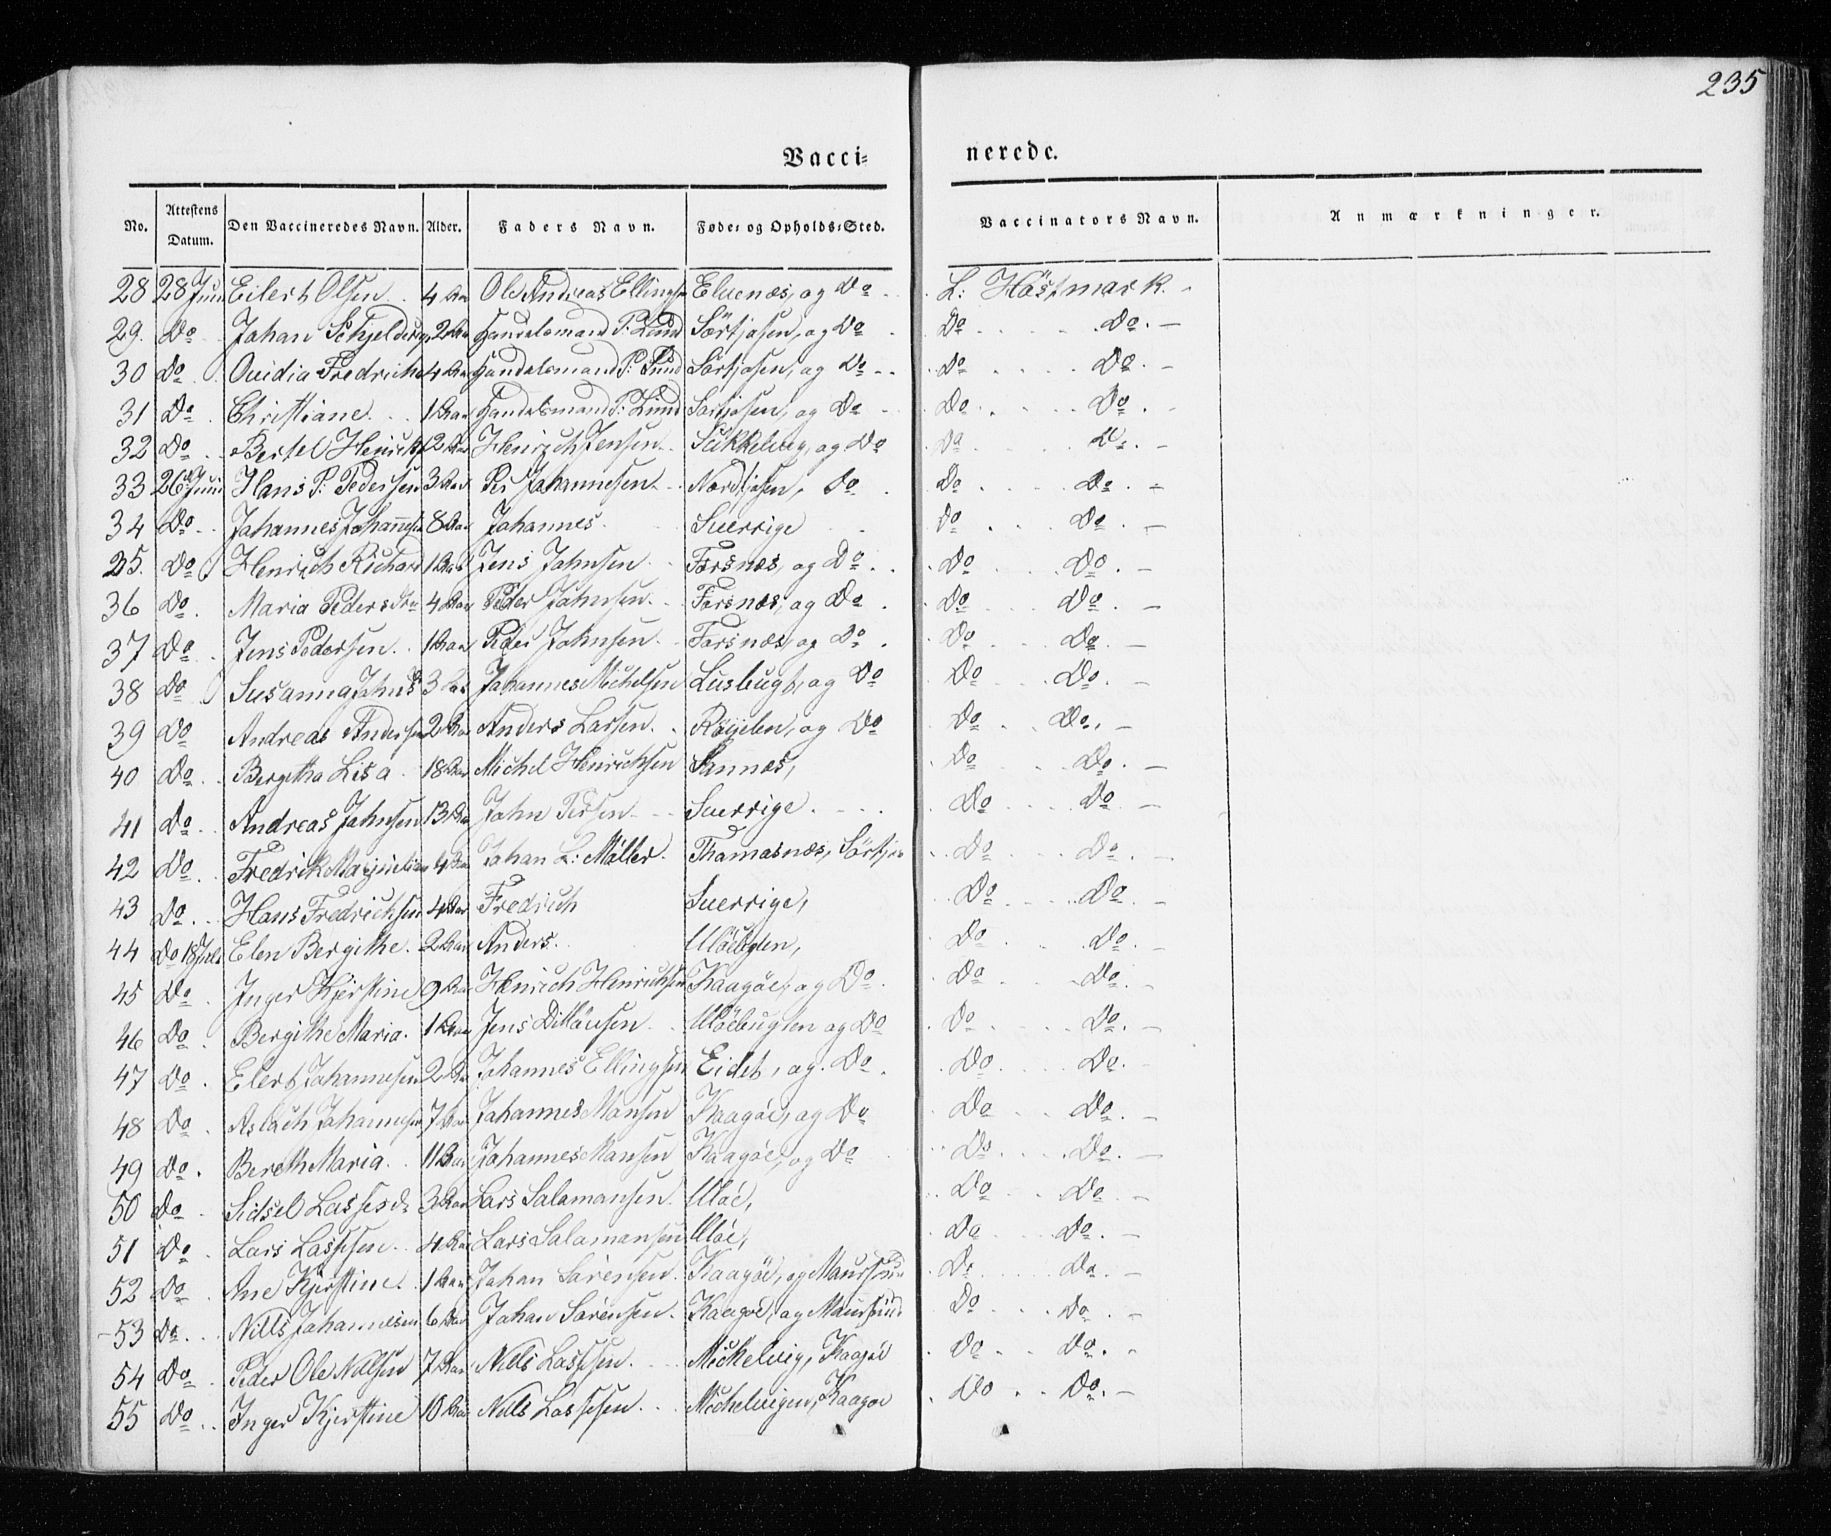 235
Vacci= nerede.
No. Attestens Datum. Den Vaccineredes Navn. Alder. Faders Navn. Føde= og Opholds=Sted. Vaccinators Navn. Anmærkninger.
28 28 Juni Eilert Olsen 4 Aar Ole Andreas Ellingsen Elvenæs, og Do L: Höstmark.
29. Do Johan Schjelderup 2 Aar Handelsmand P: Lund Sørfjosen, og Do Do Do
30 Do Ovidia Fredricha 4 Aar Handelsmand P: Lund Sørfjosen, og Do Do Do
31 Do Christiane 1 Aar Handelsmand P: Lund Sørfjosen, og Do Do Do
32 Do Bertel Henrichs 2 Aar Henrich Jensen Sukkelvig, og Do Do Do
33 26 Juni Hans P: Pedersen 3 Aar Per Johannesen Nordfjosen, Do Do Do
34 Do Johannes Johannesen 8 Aar Johannes Sverrige Do Do
35. Do Henrich Richard 1 Aar Jens Johnsen Forsnæs, og Do Do Do
36 Do Maria Pedersdr 4 Aar Peder Johnsen Forsnæs, og Do Do Do
37 Do Jens Pedersen 1 Aar Peder Johnsen Forsnæs, og Do Do Do
38 Do Susanna Johns 3 Aar Johannes Michelsen Lusbugt, og Do Do Do
39 Do Andreas Andersen 2 Aar Anders Larsen Röyelen, og Do Do Do
40 Do Bergitha Lisa 18 Aar Michel Henrichsen Sannæs, Do Do
41 Do Andreas Johnsen 13 Aar John Persen Sverrige Do Do
42 Do Fredrik Maximilian 4 Aar Johan L: Møller Thomasnæs, Sörfj Do Do
43 Do Hans Fredrichsen 4 Aar Fredrich Sverrige, Do Do
44 Do 18 Juli Elen Bergithe 2 Aar Anders Ulöebgten, Do Do
45 Do Inger Kjerstine 9 Aar Henrich Henrichsen Kaagöe, og Do Do Do
46 Do Bergithe Maria 1 Aar Jens Ulöebugten og Do Do Do
47 Do Elert Johannesen 2 Aar Johannes Ellingsen Eidet, og Do Do Do
48 Do Aslach Johannesen 7 Aar Johannes Monsen Kaagöe, og Do Do Do
49 Do Bereth Maria 11 Aar Johannes Monsen Kaagöe, og Do Do Do
50 Do Sidsel Lassesdr 3 Aar Lars Salamonsen Uløe, Do Do
51 Do Lars Lassesen 4 Aar Lars Salamonsen Uløe, Do Do
52 Do Ane Kjerstine 1 Aar Johan Sørensen Kaagöe, og Maursund Do Do
53 Do Nills Johannesen 6 Aar Johan Sørensen Kaagöe, og Maursund Do Do
54 Do Peder Ole Nilsen 7 Aar Nills Lassesen Mickelvig, Kaagöe Do Do
55 Do Inger Kjerstine 10 Aar Nills Lassesen Michelvigen, Kaagöe Do Do